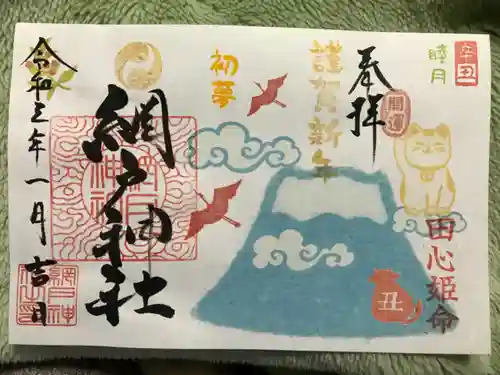 辛丑
睦月
奉拝
開運
謹賀新年
初夢
田心姫命
丑
網戸神社
令和三年一月吉日
網戸神社